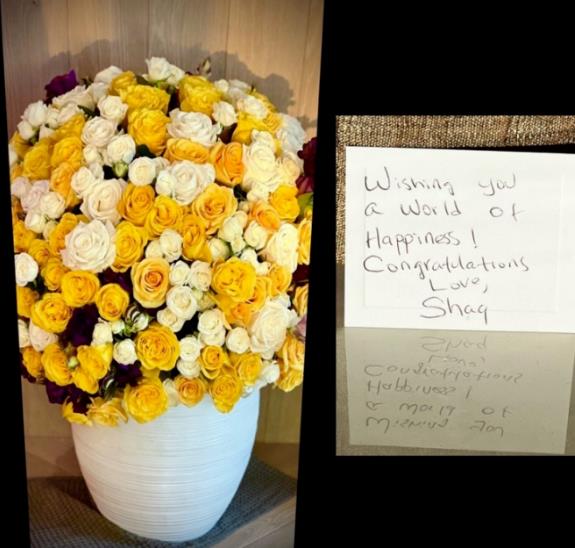 Wishing you
a World of
Happiness!
Congratulations
Love,
Shaq